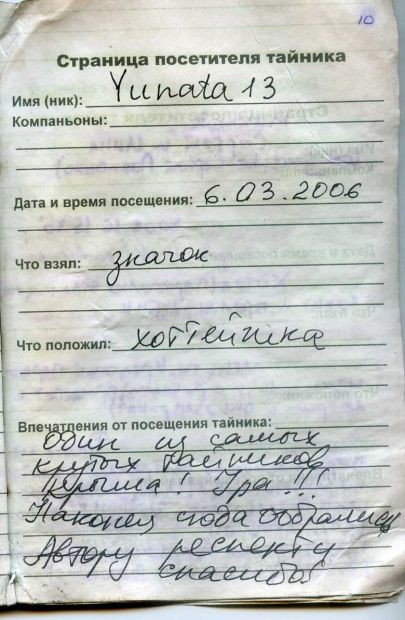 10
Страница посетителя тайника
Имя (ник): Yunata 13
Компаньоны:
Дата и время посещения: 6.03.2006
Что взял: значок
Что положил: хоттейчика
Впечатления от посещения тайника:
Один из самых
крутых тайников
Крыма. Ура!!!
Наконец сюда добрались
Автору респект и
спасибо!